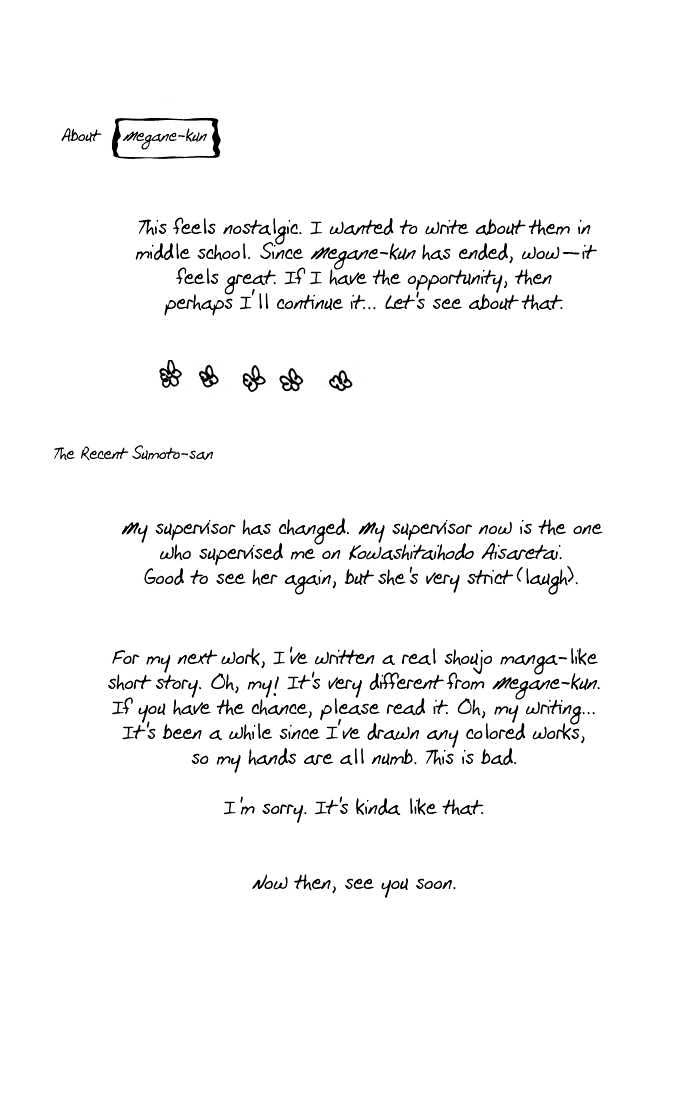 About Megane-kun
This feels nostalgic. I wanted to write about them in
middle school. Since Megane-kun has ended, wow—it
feels great. If I have the opportunity, then
perhaps I'll continue it... Let's see about that.
The Recent Sumoto-san
My supervisor has changed. My supervisor now is the one
who supervised me on Kowashitaihodo Aisaretai.
Good to see her again, but she's very strict (laugh).
For my next work, I've written a real shoujo manga-like
short story. Oh, my! It's very different from Megane-kun.
If you have the chance, please read it. Oh, my writing...
It's been a while since I've drawn any colored works,
so my hands are all numb. This is bad.
I'm sorry. It's kinda like that.
Now then, see you soon.